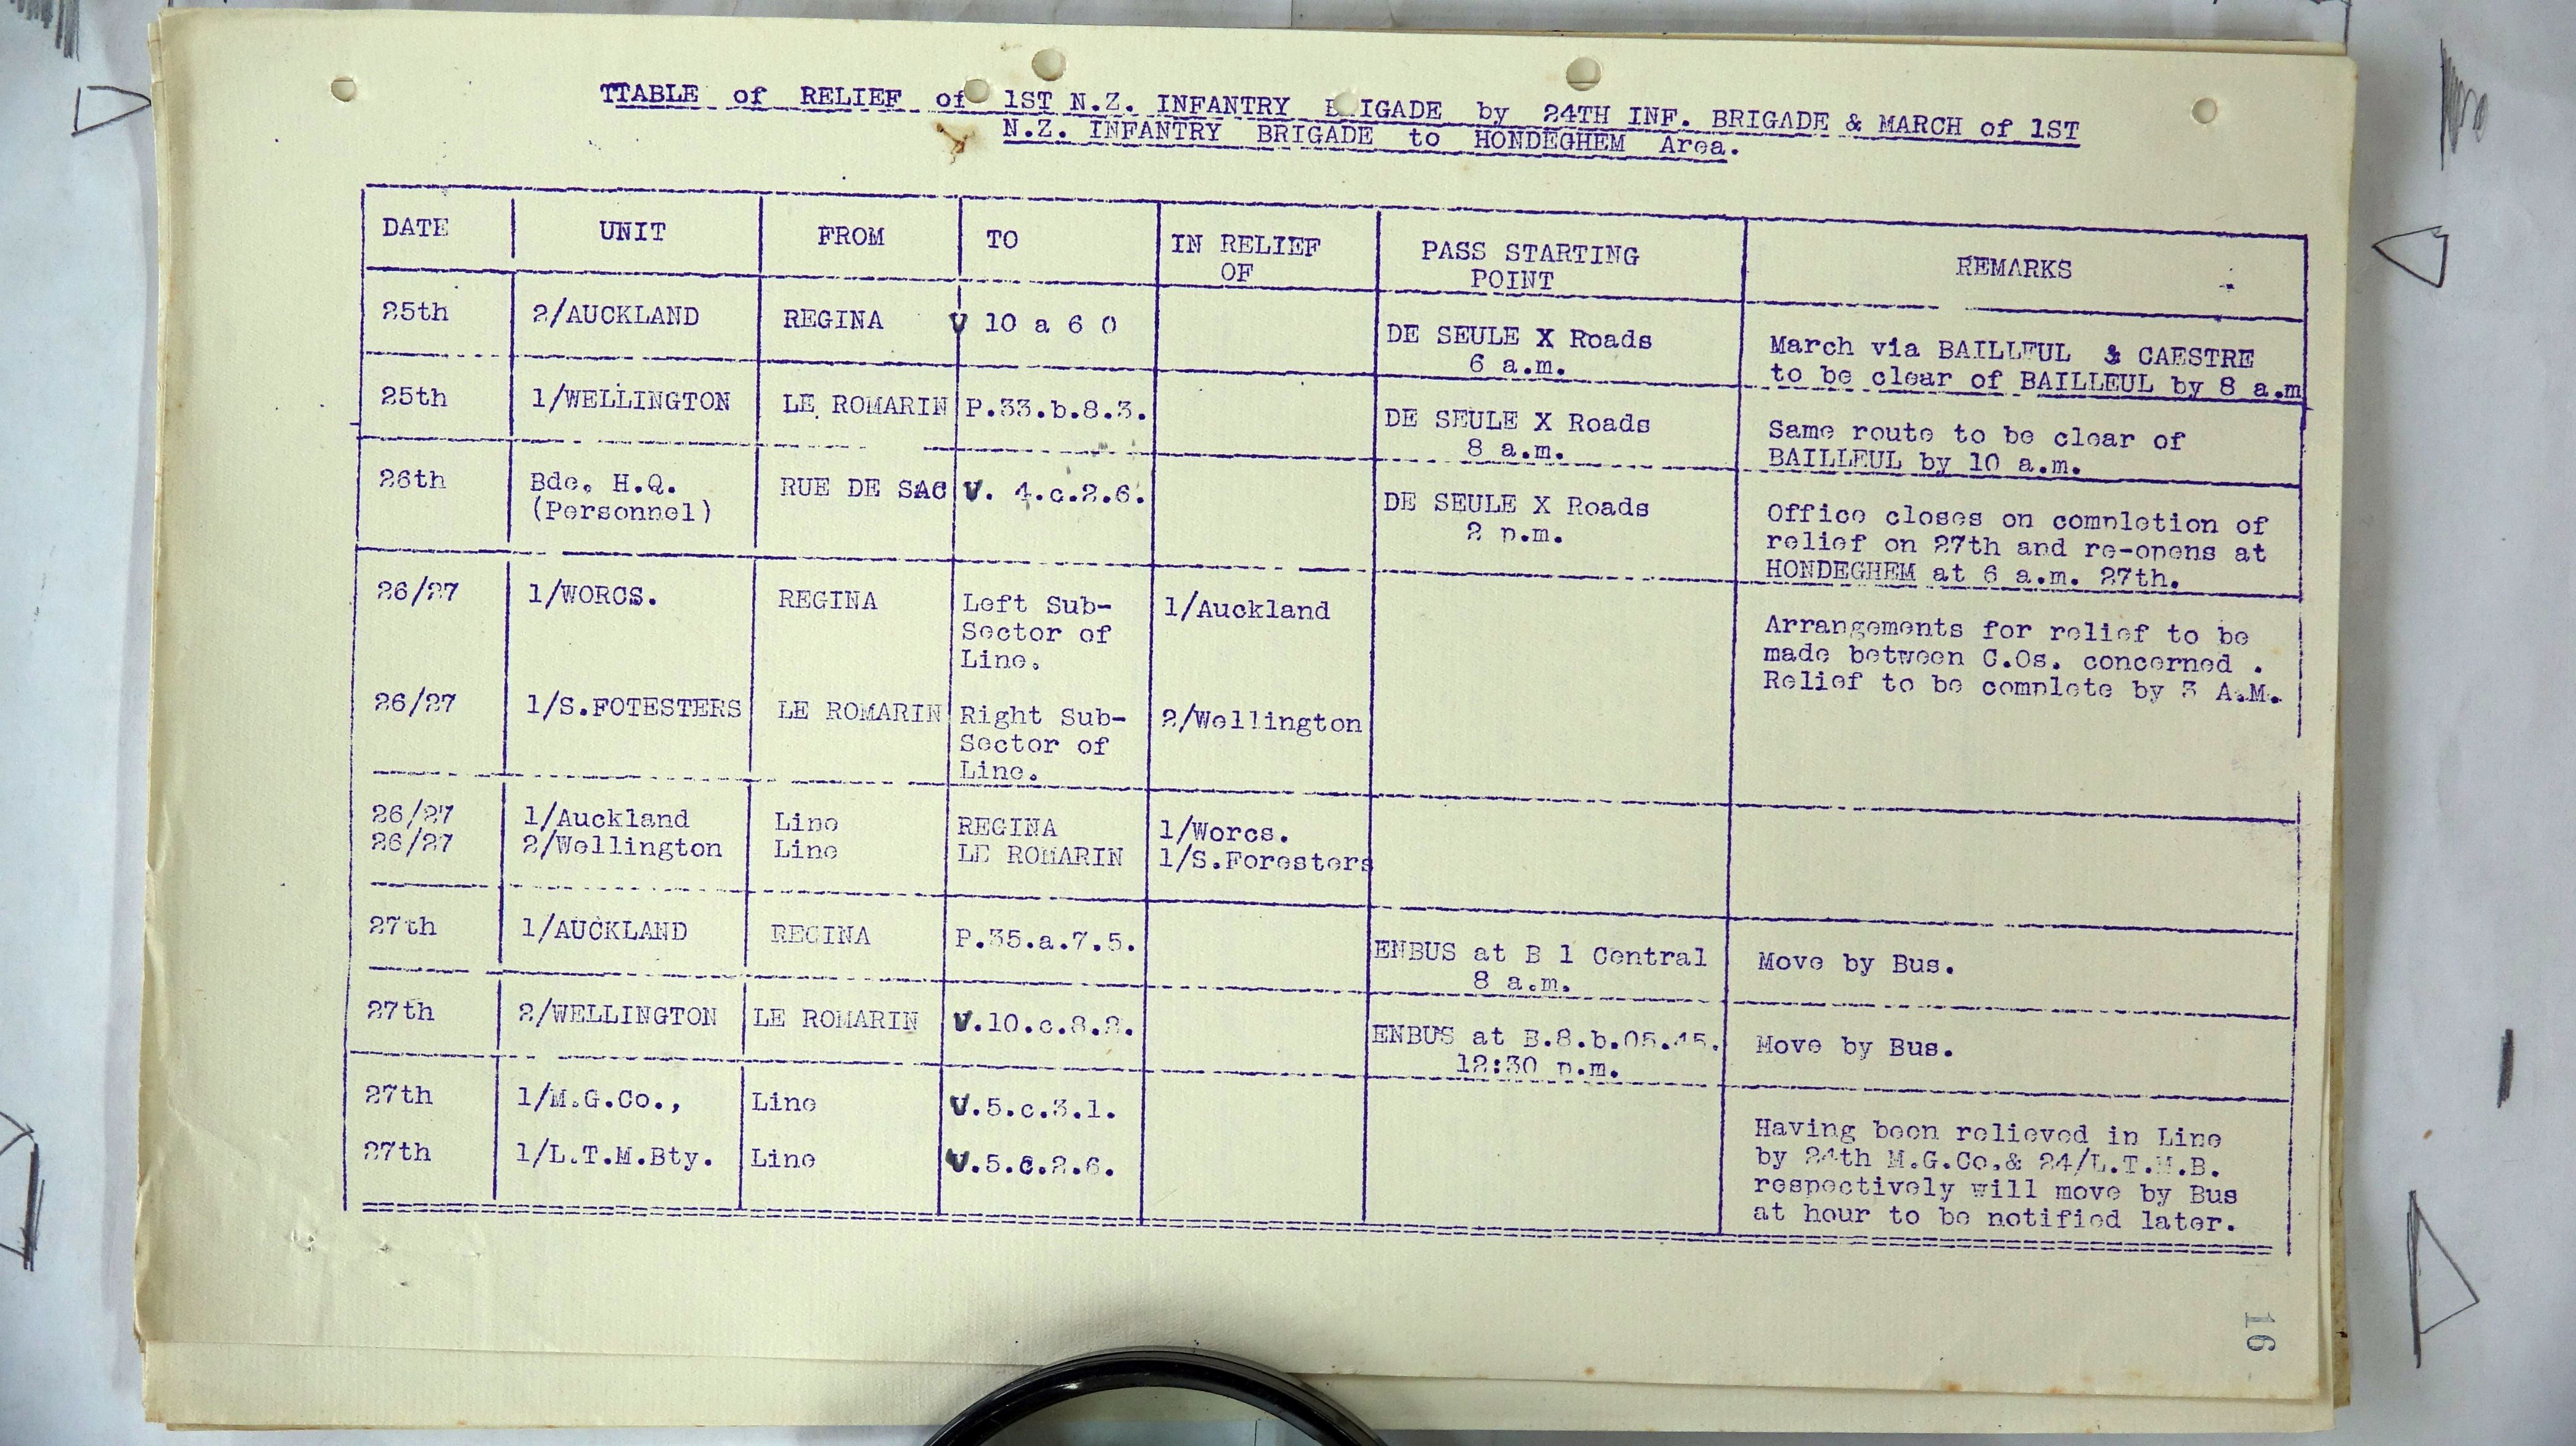 TTABLE of RELIEF of 1ST N.Z. INFANTRY B IGADE by 24TH INF. BRIGADE & MARCH of 1ST
N.Z. INFANTRY BRIGADE to HONDEGHEM Area.
DATE UNIT FROM TO IN RELIEF OF PASS STARTING POINT REMARKS
25th 2/AUCKLAND REGINA V 10 a 6 0 DE SEULE X Roads March via BAILLEUL & CAESTRE
6 a.m. to be clear of BAILLEUL by 8 a.m
25th 1/WELLINGTON LE ROMARIN P.33.b.8.3. DE SEULE X Roads Same route to be clear of
8 a.m. BAILLEUL by 10 a.m.
26th Bde. H.Q. RUE DE SAC V. 4.c.2.6. DE SEULE X Roads Office closes on completion of
(Personnel) 2 p.m. relief on 27th and re-opens at
HONDEGHEM at 6 a.m. 27th.
26/27 1/WORCS. REGINA Left Sub- 1/Auckland Arrangements for relief to be
Sector of made between C.Os. concerned .
Line. Relief to be complete by 3 A.M.
26/27 1/S.FOTESTERS LE ROMARIN Right Sub- 2/Wellington
Sector of
Line.
26/27 1/Auckland Line REGINA 1/Worcs.
26/27 2/Wellington Line LE ROMARIN 1/S.Foresters
27th 1/AUCKLAND REGINA P.35.a.7.5. ENBUS at B 1 Central Move by Bus.
8 a.m.
27th 2/WELLINGTON LE ROMARIN V.10.c.8.2. ENBUS at B.8.b.05.45. Move by Bus.
12:30 p.m.
27th 1/M.G.Co., Line V.5.c.3.1. Having been relieved in Line
27th 1/L.T.M.Bty. Line V.5.c.2.6. by 24th M.G.Co.& 24/L.T.M.B.
respectively will move by Bus
at hour to be notified later.
16